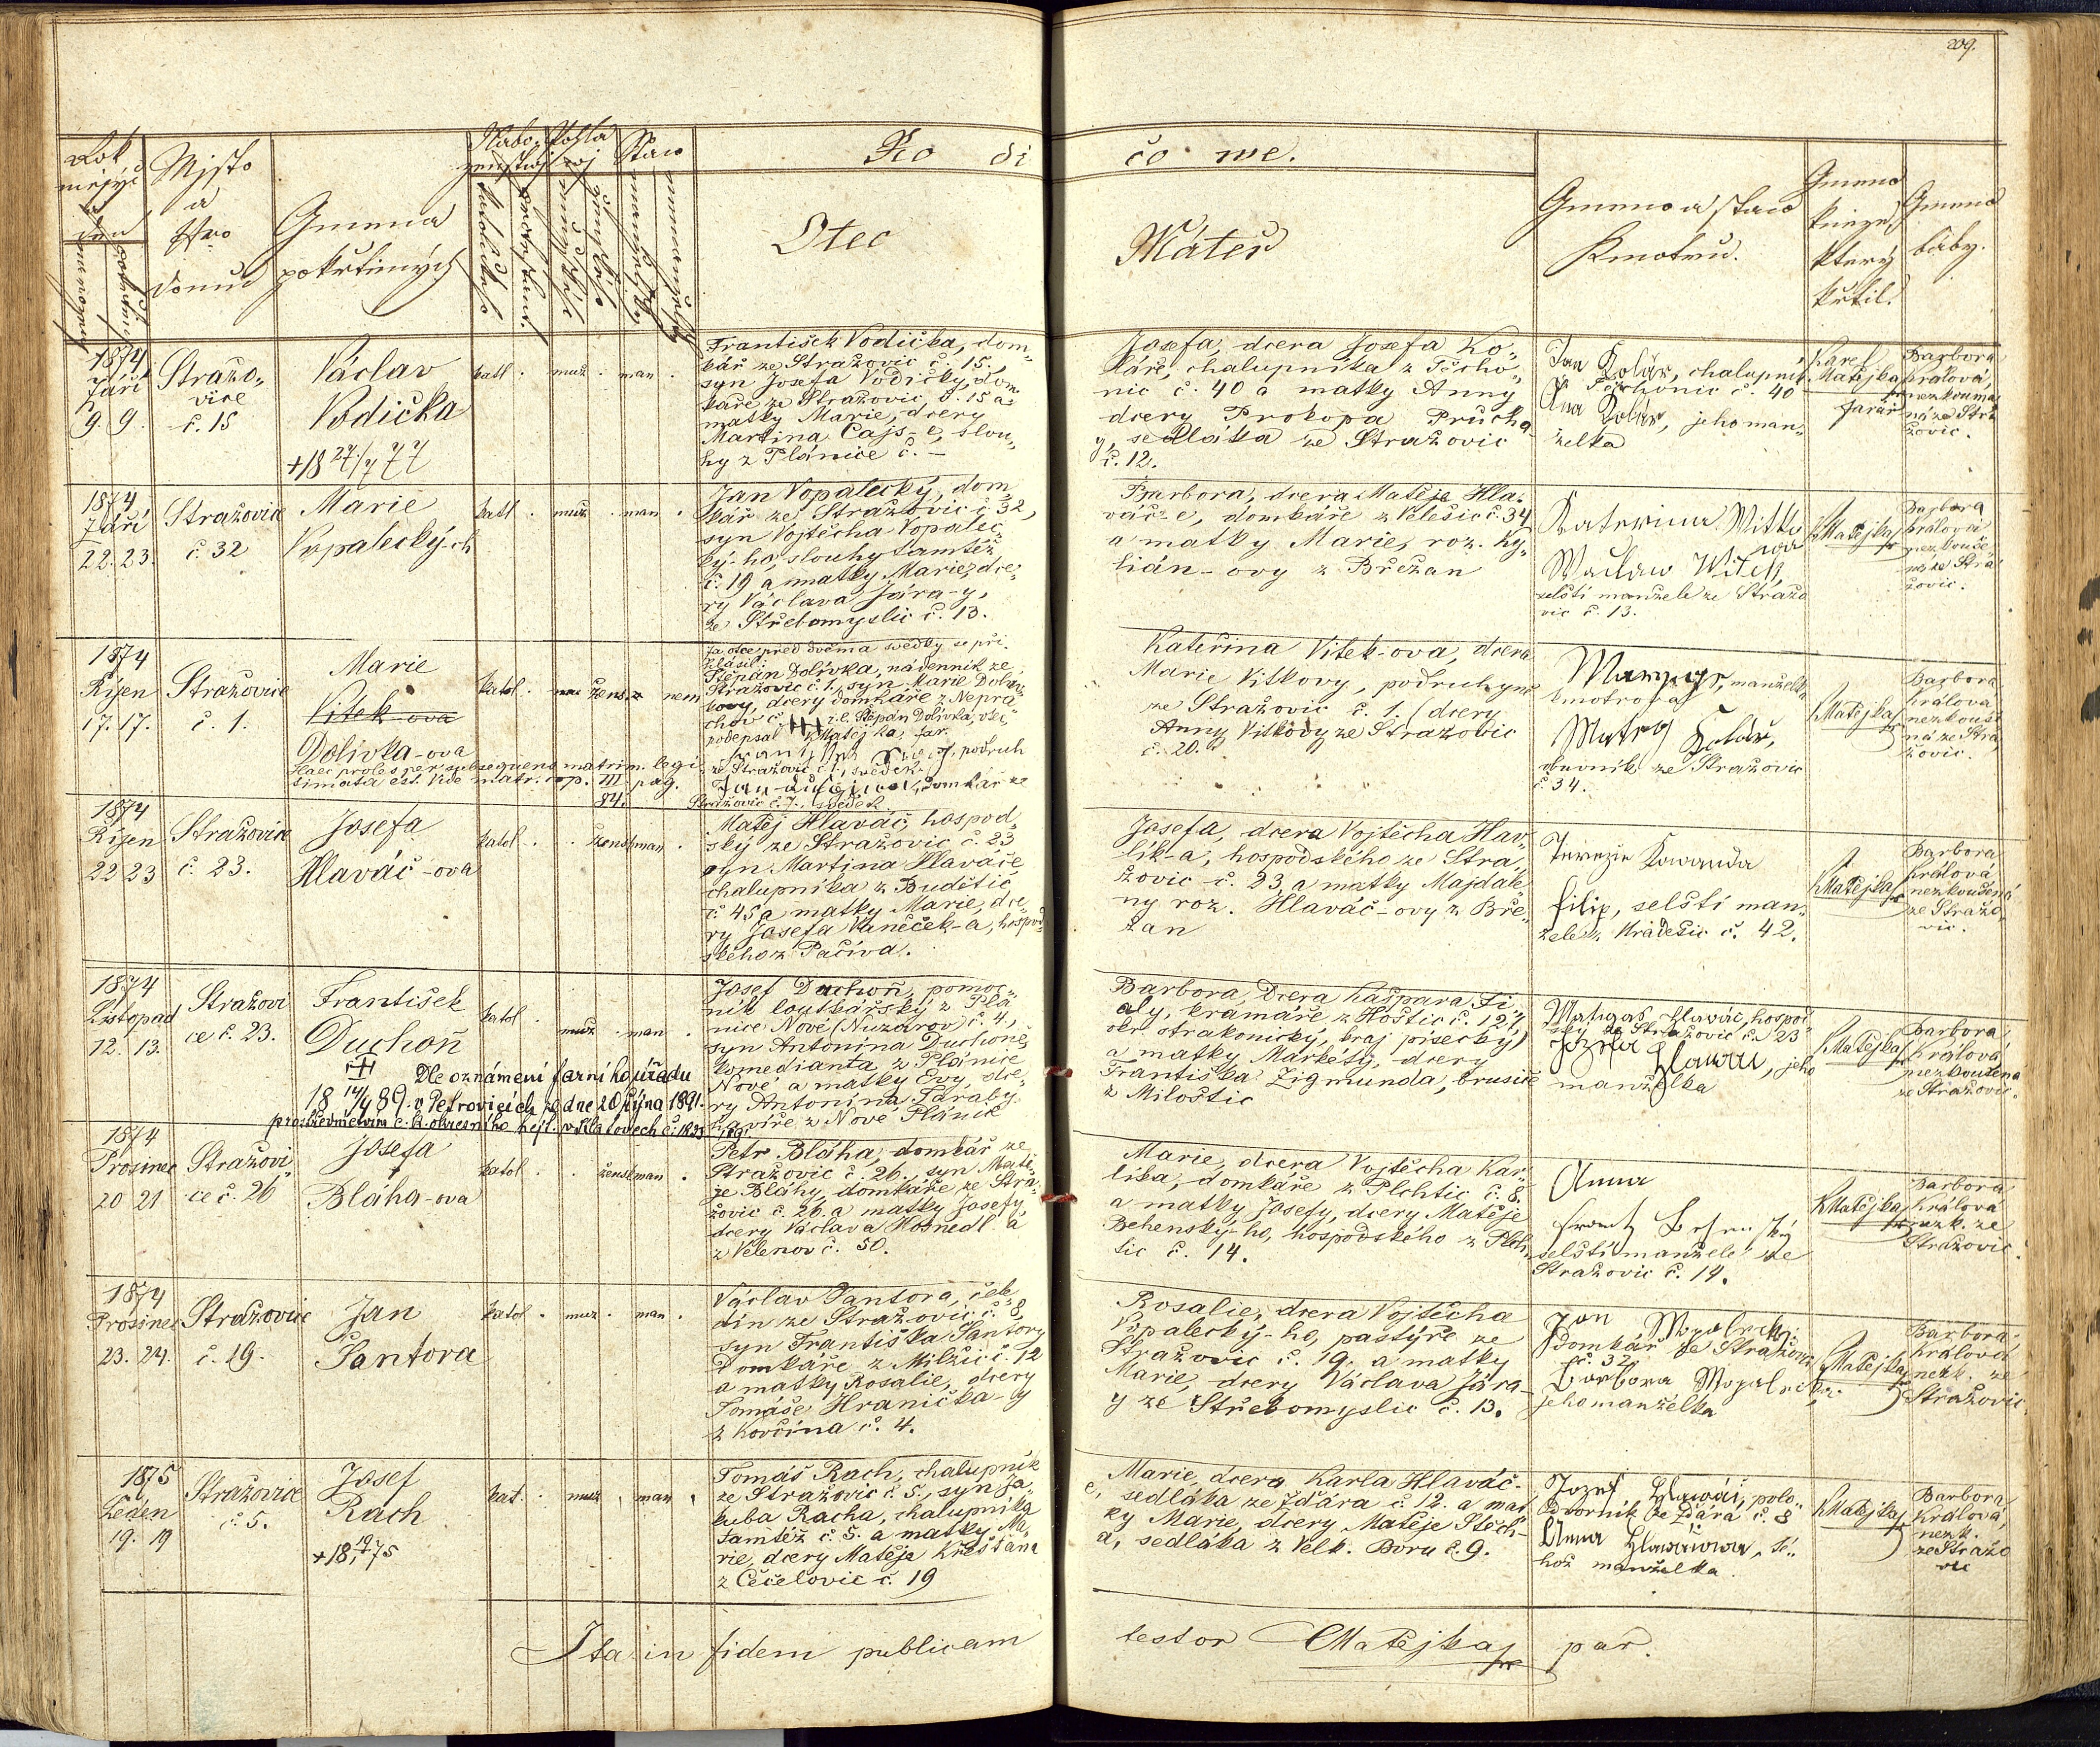 209.
Rok
měsýc
a
den
narození
pokřtění
Mjsto
a
Nro
domu
Gmena
pokřtěných
Nábo-
ženstwj
katolické
protestant.
Pohla-
wj
mužské
ženské
Staw
manželský
nemanželský
Ro di čo we.
Otec
Máteř
Gmeno a staw
Kmotrů.
Gmeno
kněze,
který
křtil.
Gmeno
báby.
1874
Září
9. 9.
Stražo„
vice
č. 15
Václav
Vodička
+18 27/7 77
katl . muž . man .
František Vodička, dom„
kář ze Stražovic č. 15.,
syn Josefa Vodičky, dom„
káře ze Stražovic č. 15 a
matky Marie, dcery
Martina Cajs-e, slou„
hy z Plánice č. –
Josefa, dcera Josefa Ko„
láře, chalupníka z Těcho„
nic č. 40 a matky Anny
dcery Prokopa Průcha-
y, sedláka ze Stražovic
č. 12.
Jan Kolář, chalupník
z Těchonic č. 40
Ana Kolář, jeho man„
želka
Karel
Matějka
farář
Barbora
Králová,
nezkouše
ná ze Stra
žovic.
1874
Září
22. 23.
Stražovice
č. 32
Marie
Vopalecký-ch
katl . muž . man .
Jan Vopalecký, dom„
kář ze Stražovic č. 32,
syn Vojtěcha Vopalec„
ký-ho, slouhy tamtéž
č. 19 a matky Marie, dce„
ry Václava Jára-y,
ze Střebomyslic č. 13.
Barbora, dcera Matěje Hla„
váč-e, domkáře z Velešic č. 34
a matky Marie, roz. Ky„
lián-ovy z Břežan
Kateřina Wittko
wa
Waclaw Witek,
selští manželé ze Stražo
vic č. 13.
K Matějka
Barbora
Králová
nezkouše„
ná ze Stra
žovic.
1874
Říjen
17. 17.
Stražovice
č. 1.
Marie
Vitek-ova
Dolivka-ova
Haec proles per subsequens matrim. legi
timata est. Vide matr. cop. III pag.
84.
katol . žensk nem
Za otce před dvěma svědky se při„
hlásil:
Štěpán Dolivka, nádenník ze
Stražovic č. 1., syn Marie Doliv„
kovy, dcery domkáře z Nepra
chov č. +++ t.č. Štěpán Dolivka, otec
podepsal K Matějka, far.
podruh
ze Stražovic č. 1, svědek
domkář ze
Stražovic č. 7., svědek
Kateřina Vitek-ova, dcera
Marie Vitkovy, podruhyně
ze Stražovic č. 1. (dcery
Anny Vitkovy ze Stražovic
č. 20.
manželka
kmotrova
Matěj Kolář,
obuvník ze Stražovic
č 34.
K Matějka
Barbora
Králova
nezkouše
ná ze Stra
žovic.
1874
Říjen
22 23
Stražovice
č. 23.
Josefa
Hlaváč-ova
katol . . žensk man .
Matěj Hlaváč, hospod„
ský ze Stražovic č. 23
syn Martina Hlaváče
chalupníka z Budětic
č. 45 a matky Marie, dce„
ry Josefa Vaněček-a, hospod„
ského z Pačiva.
Josefa, dcera Vojtěcha Hav„
lík-a, hospodského ze Stra„
žovic č. 23 a matky Majdale„
ny roz. Hlaváč-ovy z Bře„
žan
Terezie Kawanda
Filip, selští man„
želé z Hradešic č. 42.
K Matějka
Barbora
Králová
nezkoušená
ze Stražo
vic.
1874
Listopad
12. 13.
Stražovi
ce č. 23.
František
Duchoň
+ Dle oznámení farního úřadu
18 14/4 89. v Petrovicích ze dne 20 října 1891.
prostřednictvím c. k. okresního hejt. v Klatovech č. 1823
katol . muž . man .
Josef Duchoň, pomoc„
ník loutkářský z Plá
nice Nové (Nuzárov) č. 4,
syn Antonína Duchoně,
komedianta z Plánice
Nové a matky Evy, dce„
ry Antonína Taraby
kováře z Nové Plánice
Barbora, dcera Kašpara Fi„
aly, kramáře z Hoštic č. 121,
okr. strakonický, kraj písecký
a matky Markéty, dcery
Františka Zigmunda, brusiče
z Milostic
Matyas Hlawáč, hospod
ský ze Stražovic č. 23
Jozefa Hlawáč, jeho
manželka
K Matějka
Barbora
Králová
nezkoušena
ze Stražovic.
1874
Prosinec
20 21
Stražovi„
ce č. 26
Josefa
Bláha-ova
katol . . žensk man .
Petr Bláha, domkář ze
Stražovic č. 26., syn Matě„
je Bláhy, domkáře ze Stra„
žovic č. 26. a matky Josefy,
dcery Václava Hosnedl-a
z Velenov č. 50.
Marie, dcera Vojtěcha Kar„
líka, domkáře z Plchtic č. 8.
a matky Josefy, dcery Matěje
Behenský-ho, hospodského z Plch„
tic č. 14.
Anna
Frantz Behenský
selští manželé ze
Stražovic č. 14.
K Matějka
Barbora
Králová
nezk. ze
Stražovic.
1874
Prosinec
23. 24.
Stražovice
č. 19.
Jan
Šantora
katol . muž . man .
Václav Šantora, čele
dín ze Stražovic č. 8,
syn Františka Šantory
domkáře z Milčic č. 12
a matky Rosalie, dcery
Tomáše Hranička-y
z Kovčína č. 4.
Rosalie, dcera Vojtěcha
Vopalecký-ho, pastýře ze
Stražovic č. 19. a matky
Marie, dcery Václava Jára-
y ze Střebomyslic č. 13.
Jan Wopalecký
domkář ze Stražovic
č. 32.
Barbora Wopalecká
jeho manželka
K Matějka
Barbora
Králová
nezk. ze
Stražovic.
1875
Leden
19. 19
Stražovice
č. 5.
Josef
Rach
kat. . muž . man .
Tomáš Rach, chalupník
ze Stražovic č. 5., syn Ja„
kuba Racha, chalupníka
tamtéž č. 5. a matky Ma„
rie, dcery Matěje Křesťana
z Čečelovic č. 19
Marie, dcera Karla Hlaváč-
e, sedláka ze Ždára č. 12. a mat
ky Marie, dcery Matěje Štěch-
a, sedláka z Velk. Boru č 9.
Jozef Hlawáč, polo„
dvorník ze Ždára č. 8
Anna Hlawáčowa, té„
hož manželka
K Matějka
Barbora
Králová,
nezk.
ze Stražo
vic
Ita in fidem publicam testor CMatějka par.